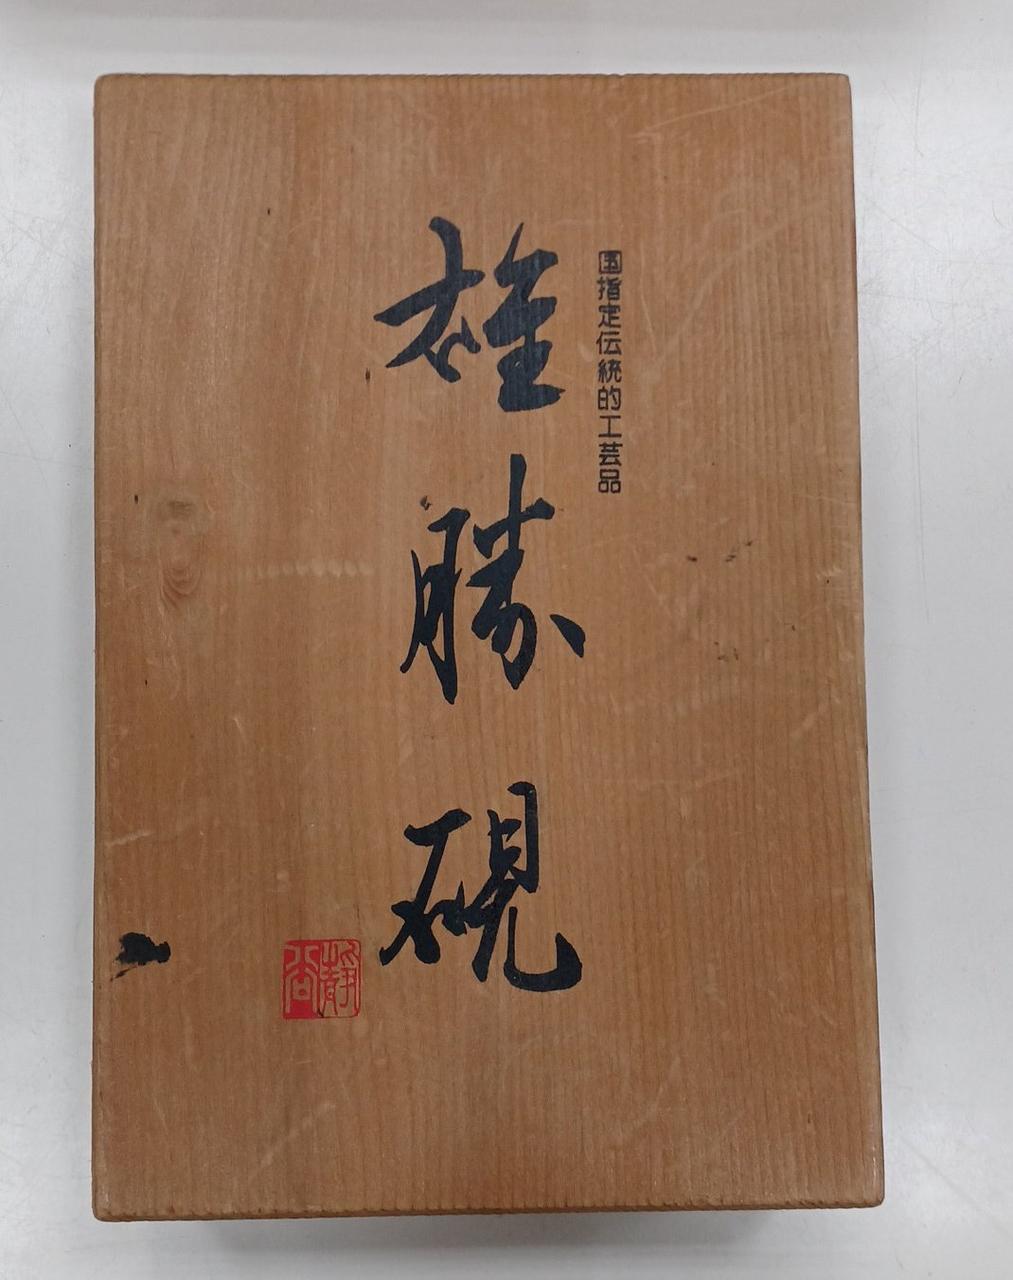 国指定伝統的工芸品
雄勝硯